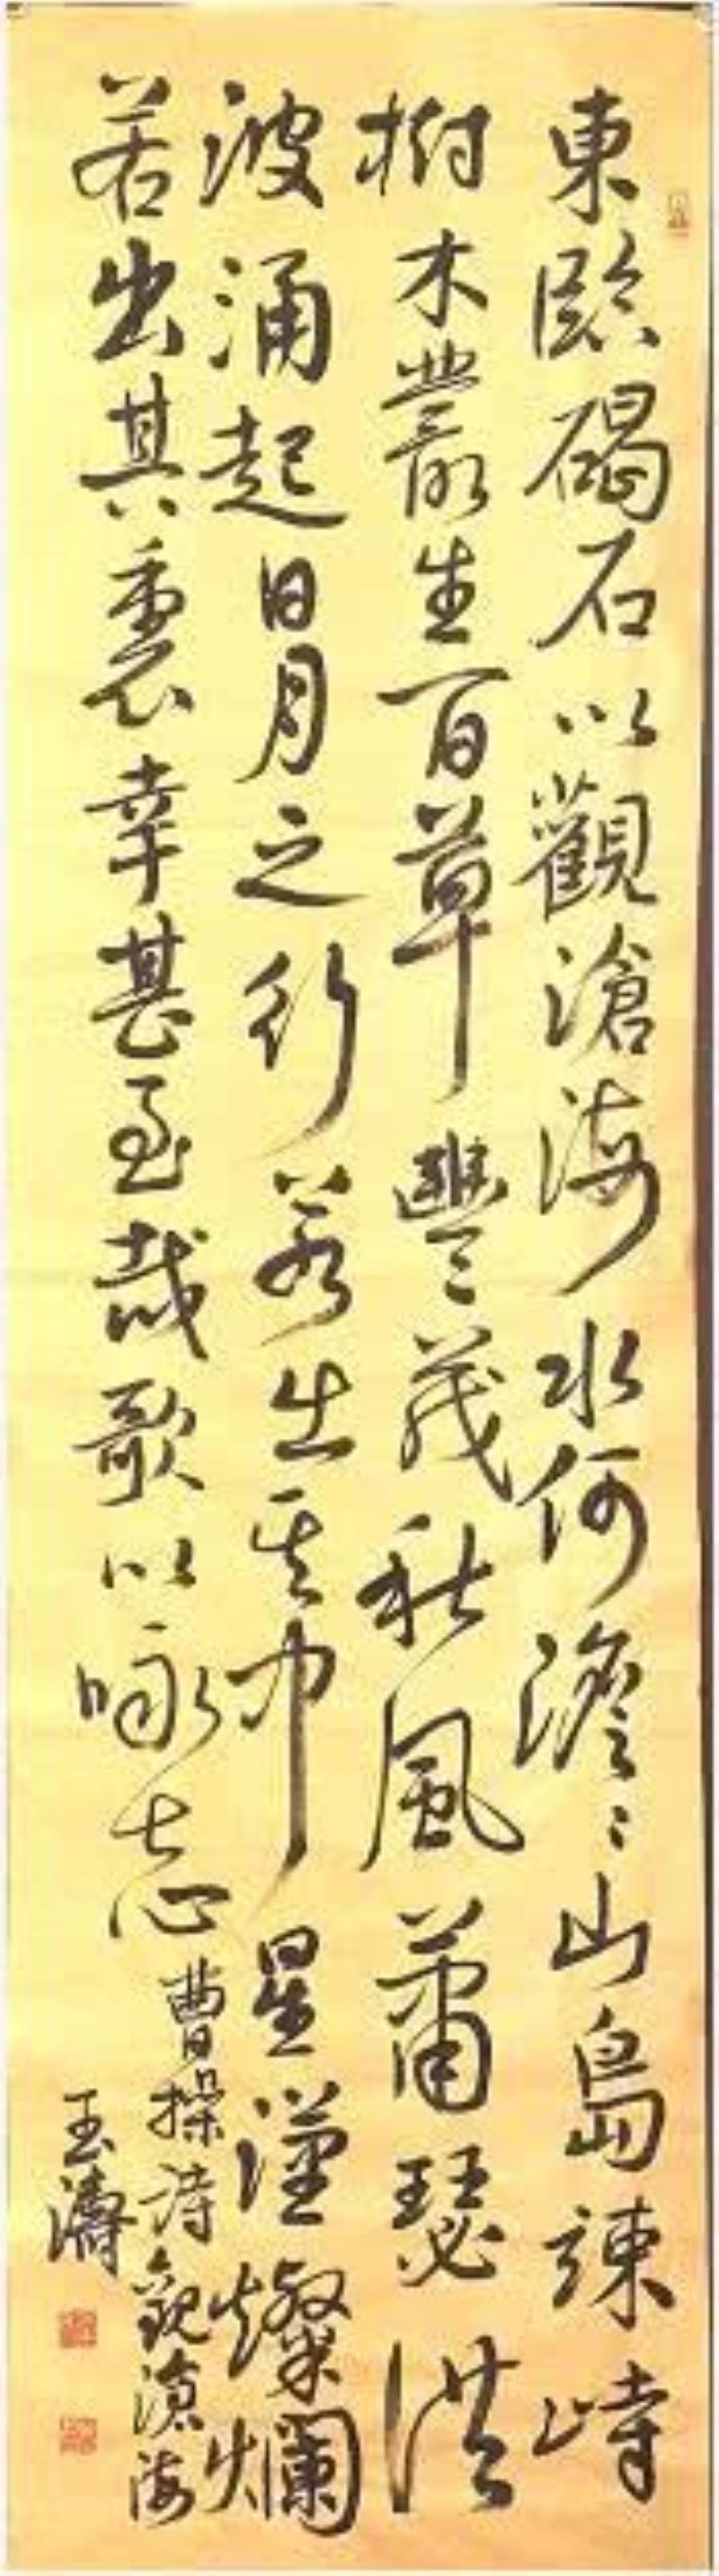 東臨碣石以觀滄海水何澹〻山島竦峙
樹木叢生百草豐茂秋風蕭瑟洪
波涌起日月之行若出其中星漢燦爛
若出其裏幸甚至哉歌以咏志
曹操詩觀滄海
玉濤